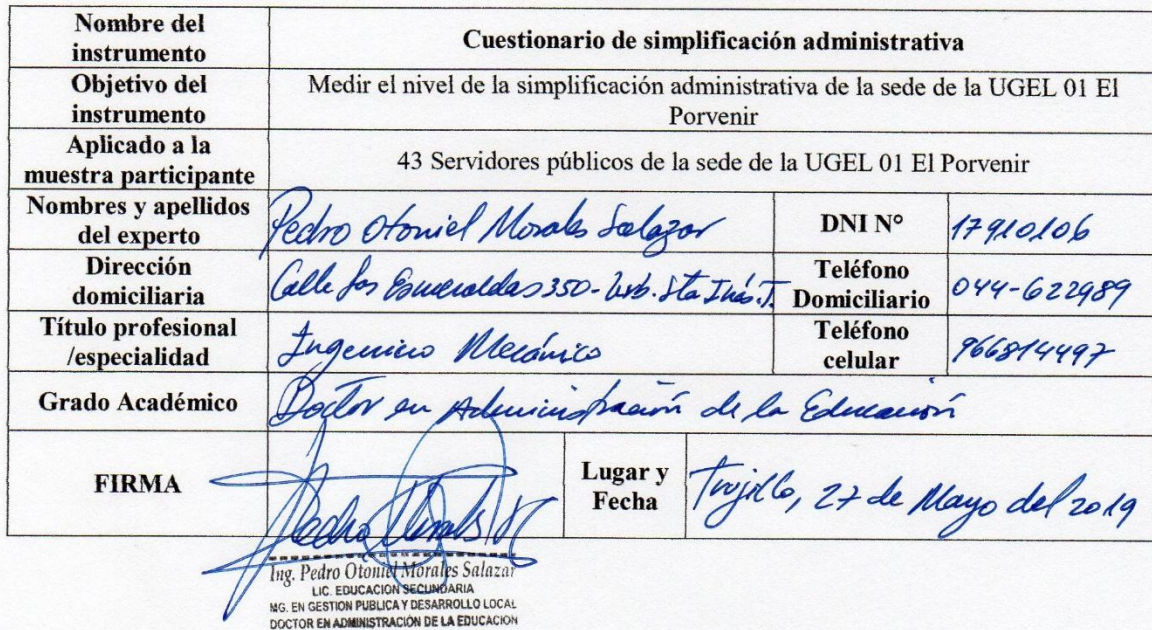 Nombre del
instrumento
Cuestionario de simplificación administrativa
Objetivo del
instrumento
Medir el nivel de la simplificación administrativa de la sede de la UGEL 01 El
Porvenir
Aplicado a la
muestra participante
43 Servidores públicos de la sede de la UGEL 01 El Porvenir
Nombres y apellidos
del experto
Pedro Otoniel Morales Salazar
DNI N°
17910106
Dirección
domiciliaria
Calle Los Esmeraldas 350 - Urb. Sta Inés. T.
Teléfono
Domiciliario
044-622989
Título profesional
/especialidad
Ingeniero Mecánico
Teléfono
celular
966814497
Grado Académico
Doctor en Administración de la Educación
FIRMA
Pedro Morales
Lugar y
Fecha
Trujillo, 27 de Mayo del 2019
Ing. Pedro Otoniel Morales Salazar
LIC. EDUCACION SECUNDARIA
MG. EN GESTION PUBLICA Y DESARROLLO LOCAL
DOCTOR EN ADMINISTRACIÓN DE LA EDUCACION